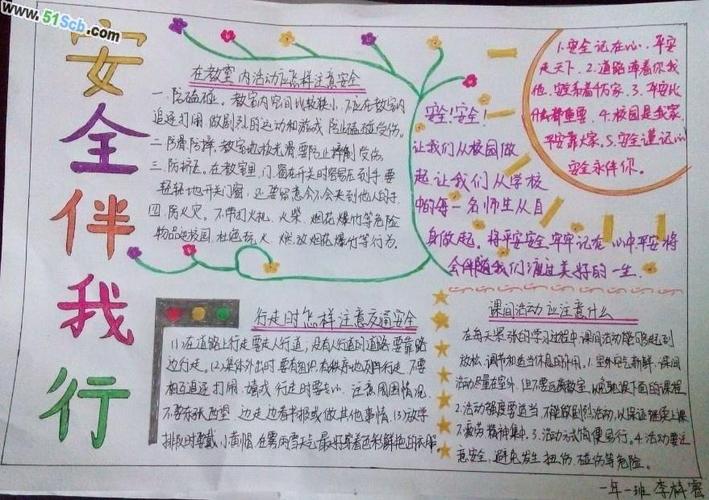 www.51Scb.com
安全伴我行
在教室内活动应怎样注意安全
一.防磕碰。教室内空间比较狭小,不应在教室内
追逐打闹,做剧烈的运动和游戏,防止磕碰受伤。
二.防滑防摔,教室地板光滑要防止摔倒受伤
三.防挤压。在教室里,门、窗在开关时容易压到手,要
轻轻地开关门窗,还要留意会不会夹到他人的手。
四.防火灾。不带打火机、火柴、烟花爆竹等危险
物品进校园,杜绝玩火、燃放烟花爆竹等行为。
安全!安全!
让我们从校园做
起,让我们从学校
中的每一名师生从自
身做起,将平安安全牢牢记在心中平安将
会伴随我们渡过美好的一生.
1.安全记在心,平安
走天下.2.道路牵着你我
他,安全系着千万家.3.平安比
什么都重要.4.校园是我家,
平安靠大家.5.安全谨记心
安全永伴你。
行走时怎样注意交通安全
(1)在道路上行走,要走人行道,没有人行道的道路,要靠路
边行走。(2)集体外出时,要有组织、有秩序地列队行走,不要
相互追逐、打闹、嬉戏,行走时要专心,注意周围情况,
不要东张西望、边走边看书报或做其他事情.(3)放学
排队时要戴小黄帽,在雾雨雪天气最好穿着色彩鲜艳的衣服
课间活动应注意什么
在每天紧张的学习过程中,课间活动能够起到
放松、调节和适当休息的作用。1.室外空气新鲜,课间
活动尽量在室外,但不要远离教室,以免耽误下面的课程
2.活动强度要适当,不能做剧烈活动,以保证继续上课
不疲劳、精神集中.3.活动方式简便易行。4.活动要注
意安全,避免发生扭伤、碰伤等危险。
一年一班 李梓